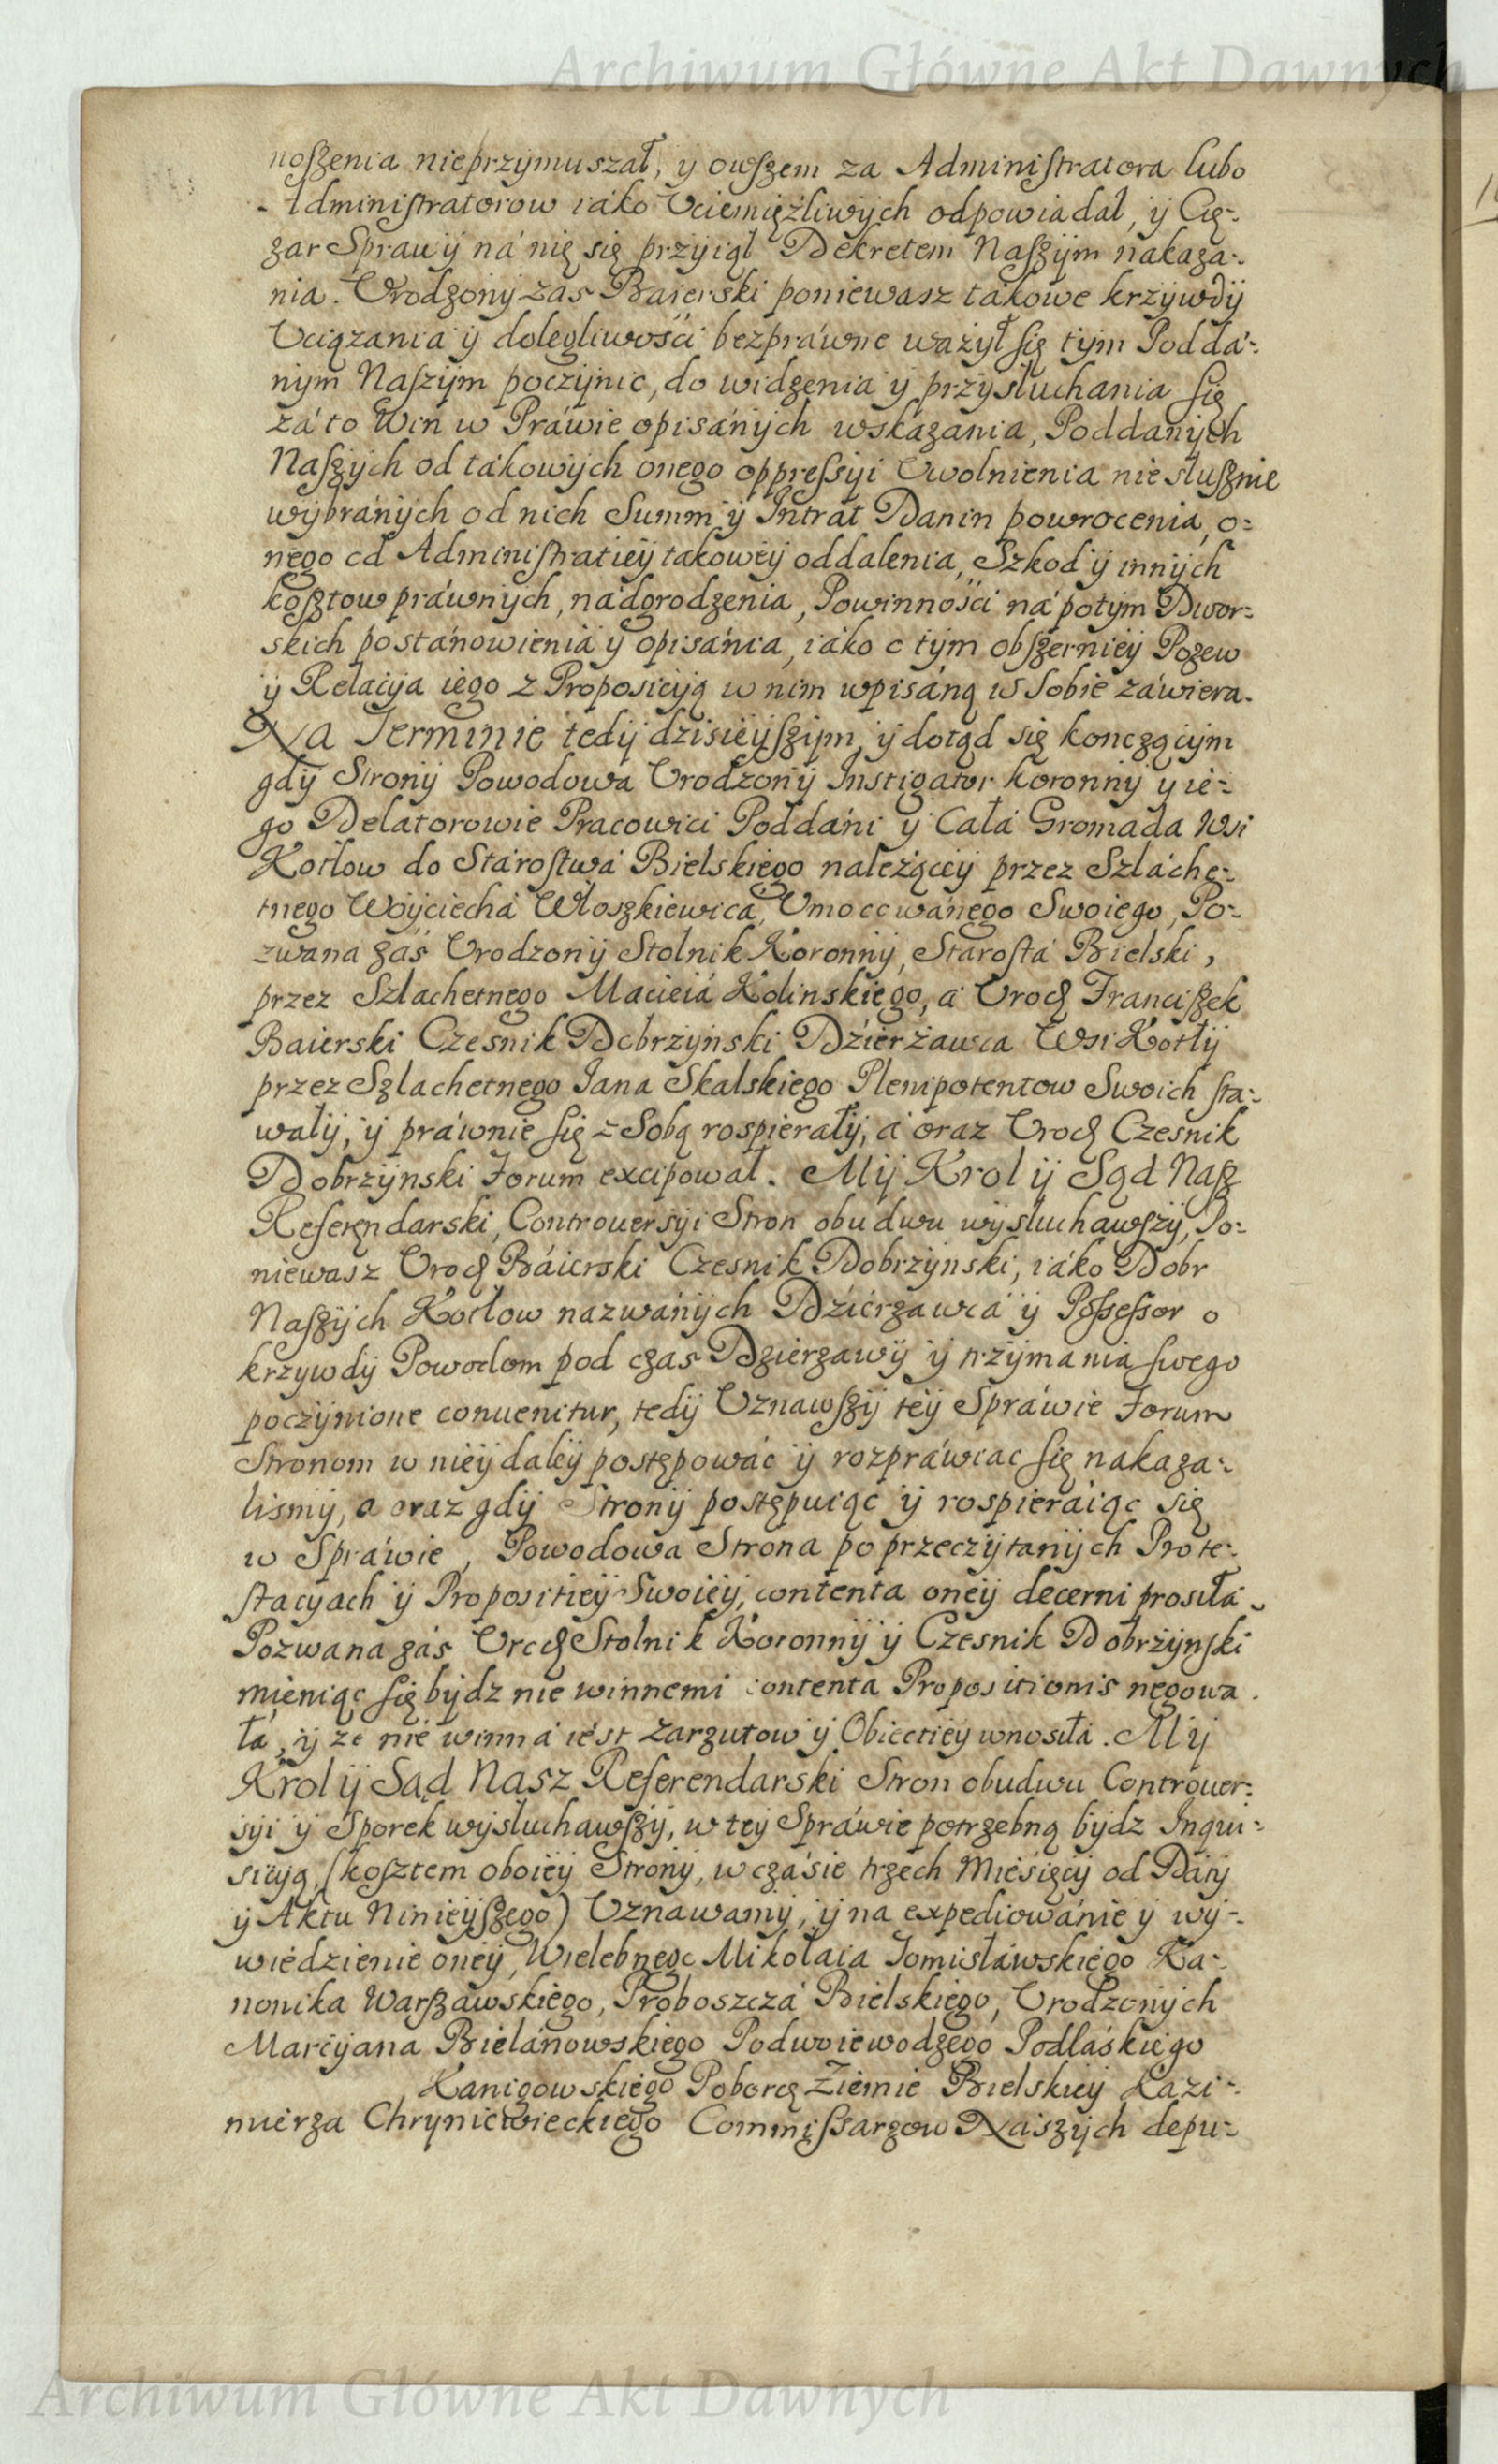 Archiwum Główne Akt Dawnych
noszenia nieprzymuszał, y owszem za Administratora lubo
Administratorow iáko Vciemiężliwych odpowiadał, y Cię-:
zar Sprawy ná nię się przyiął Dekretem Naszym nakaza-:
nia. Vrodzony zas Baierski poniewasz takowe krzywdy
Vciązania y dolegliwości bezpráwne ważył się tym Poddá-:
nym Naszym poczynic, do widzenia y przysłuchania się
zá to Win w Práwie opisánych wskázania, Poddanych
Naszych od tákowych onego oppressyi Vwolnienia niesłusznie
wybránych od nich Summ y Intrat Danin powrocenia, o-:
nego od Administratiey takowey oddalenia, Szkod y innych
kosztow práwnych, nádgrodzenia, Powinności ná potym Dwor-:
skich postánowieniá y opisánia, iáko o tym obszerniey Pozew
y Relacya iego z Proposicyą w nim wpisáną w sobie záwiera.
Na Terminie tedy dzisieyszym, y dotąd się konczącym
gdy Strony Powodowa Vrodzony Instigator koronny y ie-:
go Delatorowie Pracowici Poddáni y Cała Gromada Wsi
Kotłow do Stárostwá Bielskiego należącey przez Szláche-:
tnego Woyciechá Włoszkiewica, Vmocowánego Swoiego, Po-:
zwana záś Vrodzony Stolnik Koronny, Starostá Bielski,
przez Szlachetnego Macieiá Kolinskiego, á Vrod Franciszek
Baierski Czesnik Dobrzynski Dzierżawca Wsi Kotły
przez Szlachetnego Jana Skalskiego Plenipotentow Swoich sta-:
wały, y práwnie się z Sobą rospierały, á oraz Vrod Czesnik
Dobrzynski Forum excipował. My Krol y Sąd Nasz
Referendarski, Controuersyi Stron obudwu wysłuchawszy, Po-:
niewasz Vrod Báierski Czesnik Dobrzynski, iáko Dobr
Naszych Kotłow nazwánych Dzierzawcá y Possessor o
krzywdy Powodom pod czas Dzierzawy y trzymania swego
poczynione conuenitur, tedy Vznawszy tey Spráwie Forum
Stronom w niey daley postępowác y rozpráwiac się nakaza-:
lismy, a oraz gdy Strony postępuiąc y rospieraiąc się
w Spráwie, Powodowa Strona po przeczytanych Prote-:
stacyach y Propositiey Swoiey, contenta oney decerni prosiłá.
Pozwana záś Vrod Stolnik Koronny y Czesnik Dobrzynski
mieniąc się bydz nie winnemi contenta Propositionis negowa.
łá, y ze nie winná iest zarzutow y Obiectiey wnosiła. My
Krol y Sąd Nasz Referendarski Stron obudwu Controuer-:
syi y Sporek wysłuchawszy, w tey Spráwie potrzebną bydz Inqui-:
sicyą, (kosztem oboiey Strony, w czásie trzech Miesięcy od Daty
y Aktu Ninieyszego) Vznawamy, y na expediowánie y wy-:
wiedzienie oney, Wielebnego Mikołaia Tomisławskiego Ka-:
nonika Warszawskiego, Proboszczá Bielskiego, Vrodzonych
Marcyana Bielánowskiego Podwoiewodzego Podláskiego
Kanigowskiego Poborcę Ziemie Bielskiey Kazi-:
mierza Chryniewieckiego Commissarzow Naszych depu-:
Archiwum Główne Akt Dawnych